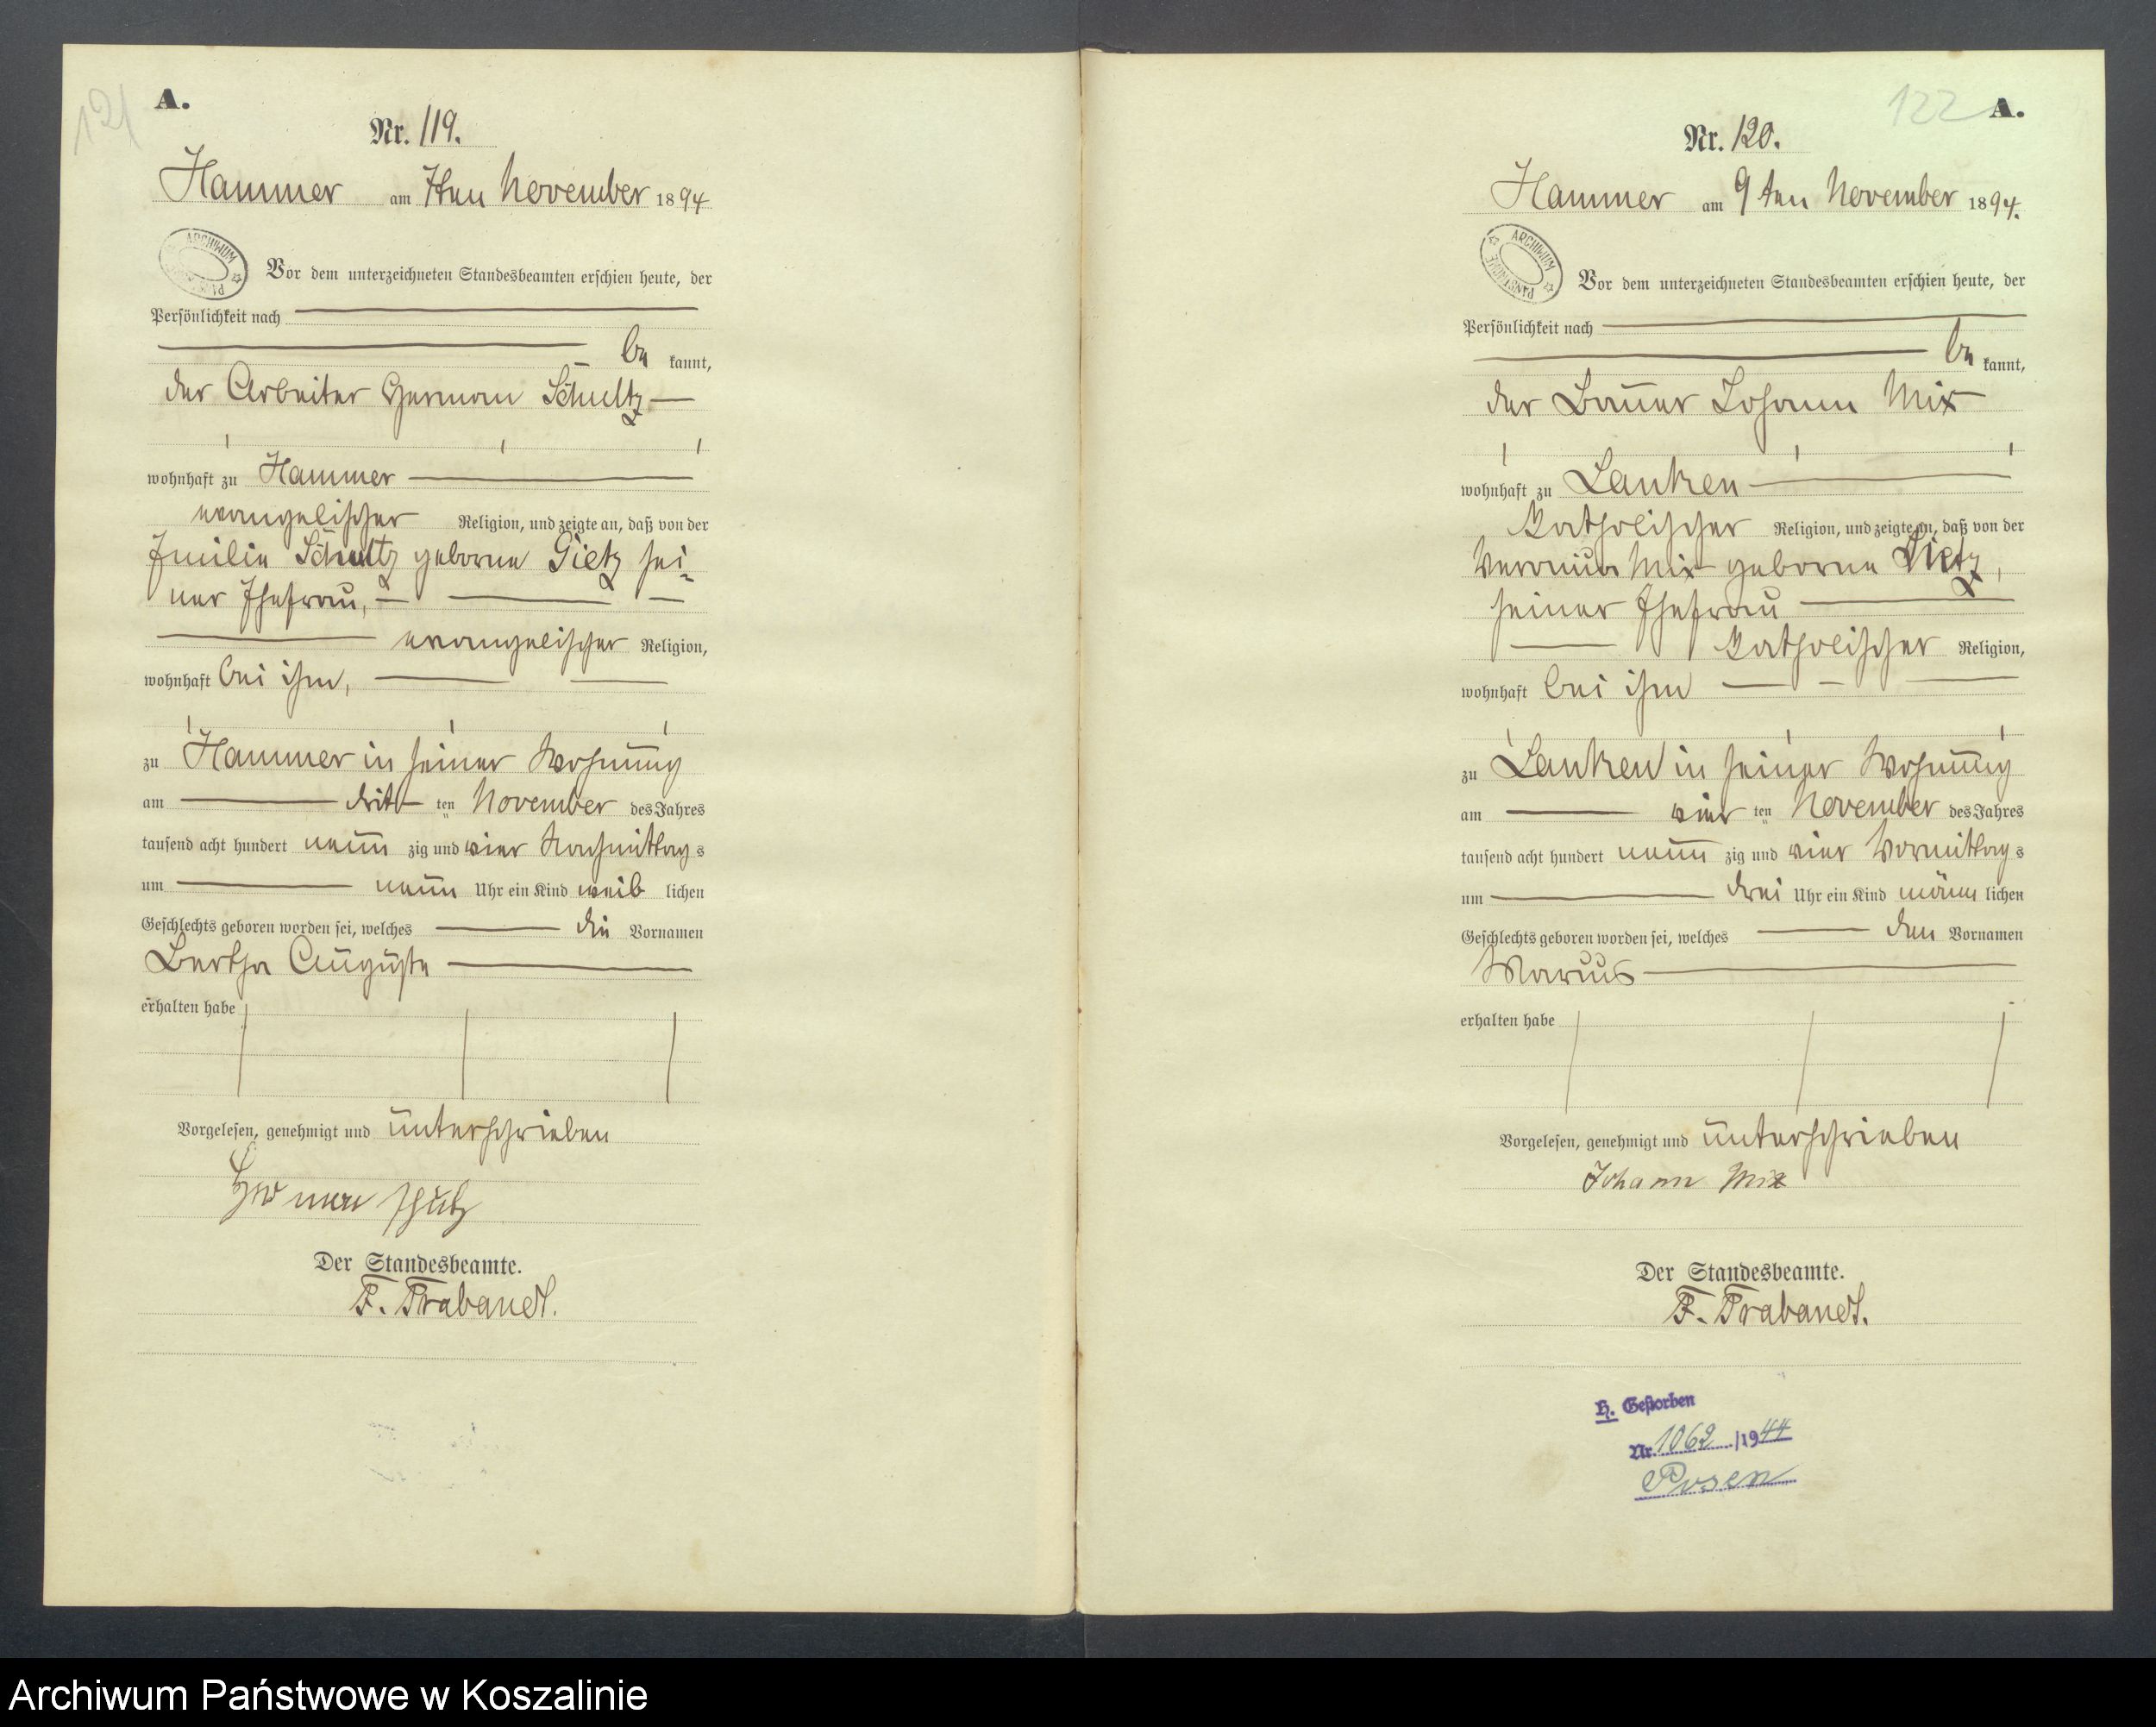 121
A.
Nr. 119.
Hammer am 7ten November 1894
ARCHIWUM PAŃSTWOWE
Vor dem unterzeichneten Standesbeamten erschien heute, der
Persönlichkeit nach
be kannt,
der Arbeiter Herman Schultz
wohnhaft zu Hammer
evangelischer Religion, und zeigte an, daß von der
Emilie Schultz geborne Gietz sei-
ner Ehefrau,
evangelischer Religion,
wohnhaft bei ihm,
zu Hammer in seiner Wohnung
am drit ten November des Jahres
tausend acht hundert neun zig und vier Nachmittag s
um neun Uhr ein Kind weib lichen
Geschlechts geboren worden sei, welches die Vornamen
Bertha Auguste
erhalten habe
Vorgelesen, genehmigt und unterschrieben
Herman Schulz
Der Standesbeamte.
F. Trabandt.
122
A.
Nr. 120.
Hammer am 9ten November 1894.
ARCHIWUM PAŃSTWOWE
Vor dem unterzeichneten Standesbeamten erschien heute, der
Persönlichkeit nach
be kannt,
der Bauer Johann Mix
wohnhaft zu Lanken
katholischer Religion, und zeigte an, daß von der
Veronica Mix geborne Dietz,
seiner Ehefrau
katholischer Religion,
wohnhaft bei ihm
zu Lanken in seiner Wohnung
am vier ten November des Jahres
tausend acht hundert neun zig und vier Vormittag s
um drei Uhr ein Kind männ lichen
Geschlechts geboren worden sei, welches den Vornamen
erhalten habe
Vorgelesen, genehmigt und unterschrieben
Johann Mix
Der Standesbeamte.
F. Trabandt.
H. Gestorben
Nr. 1062 /1944
Posen
Archiwum Państwowe w Koszalinie